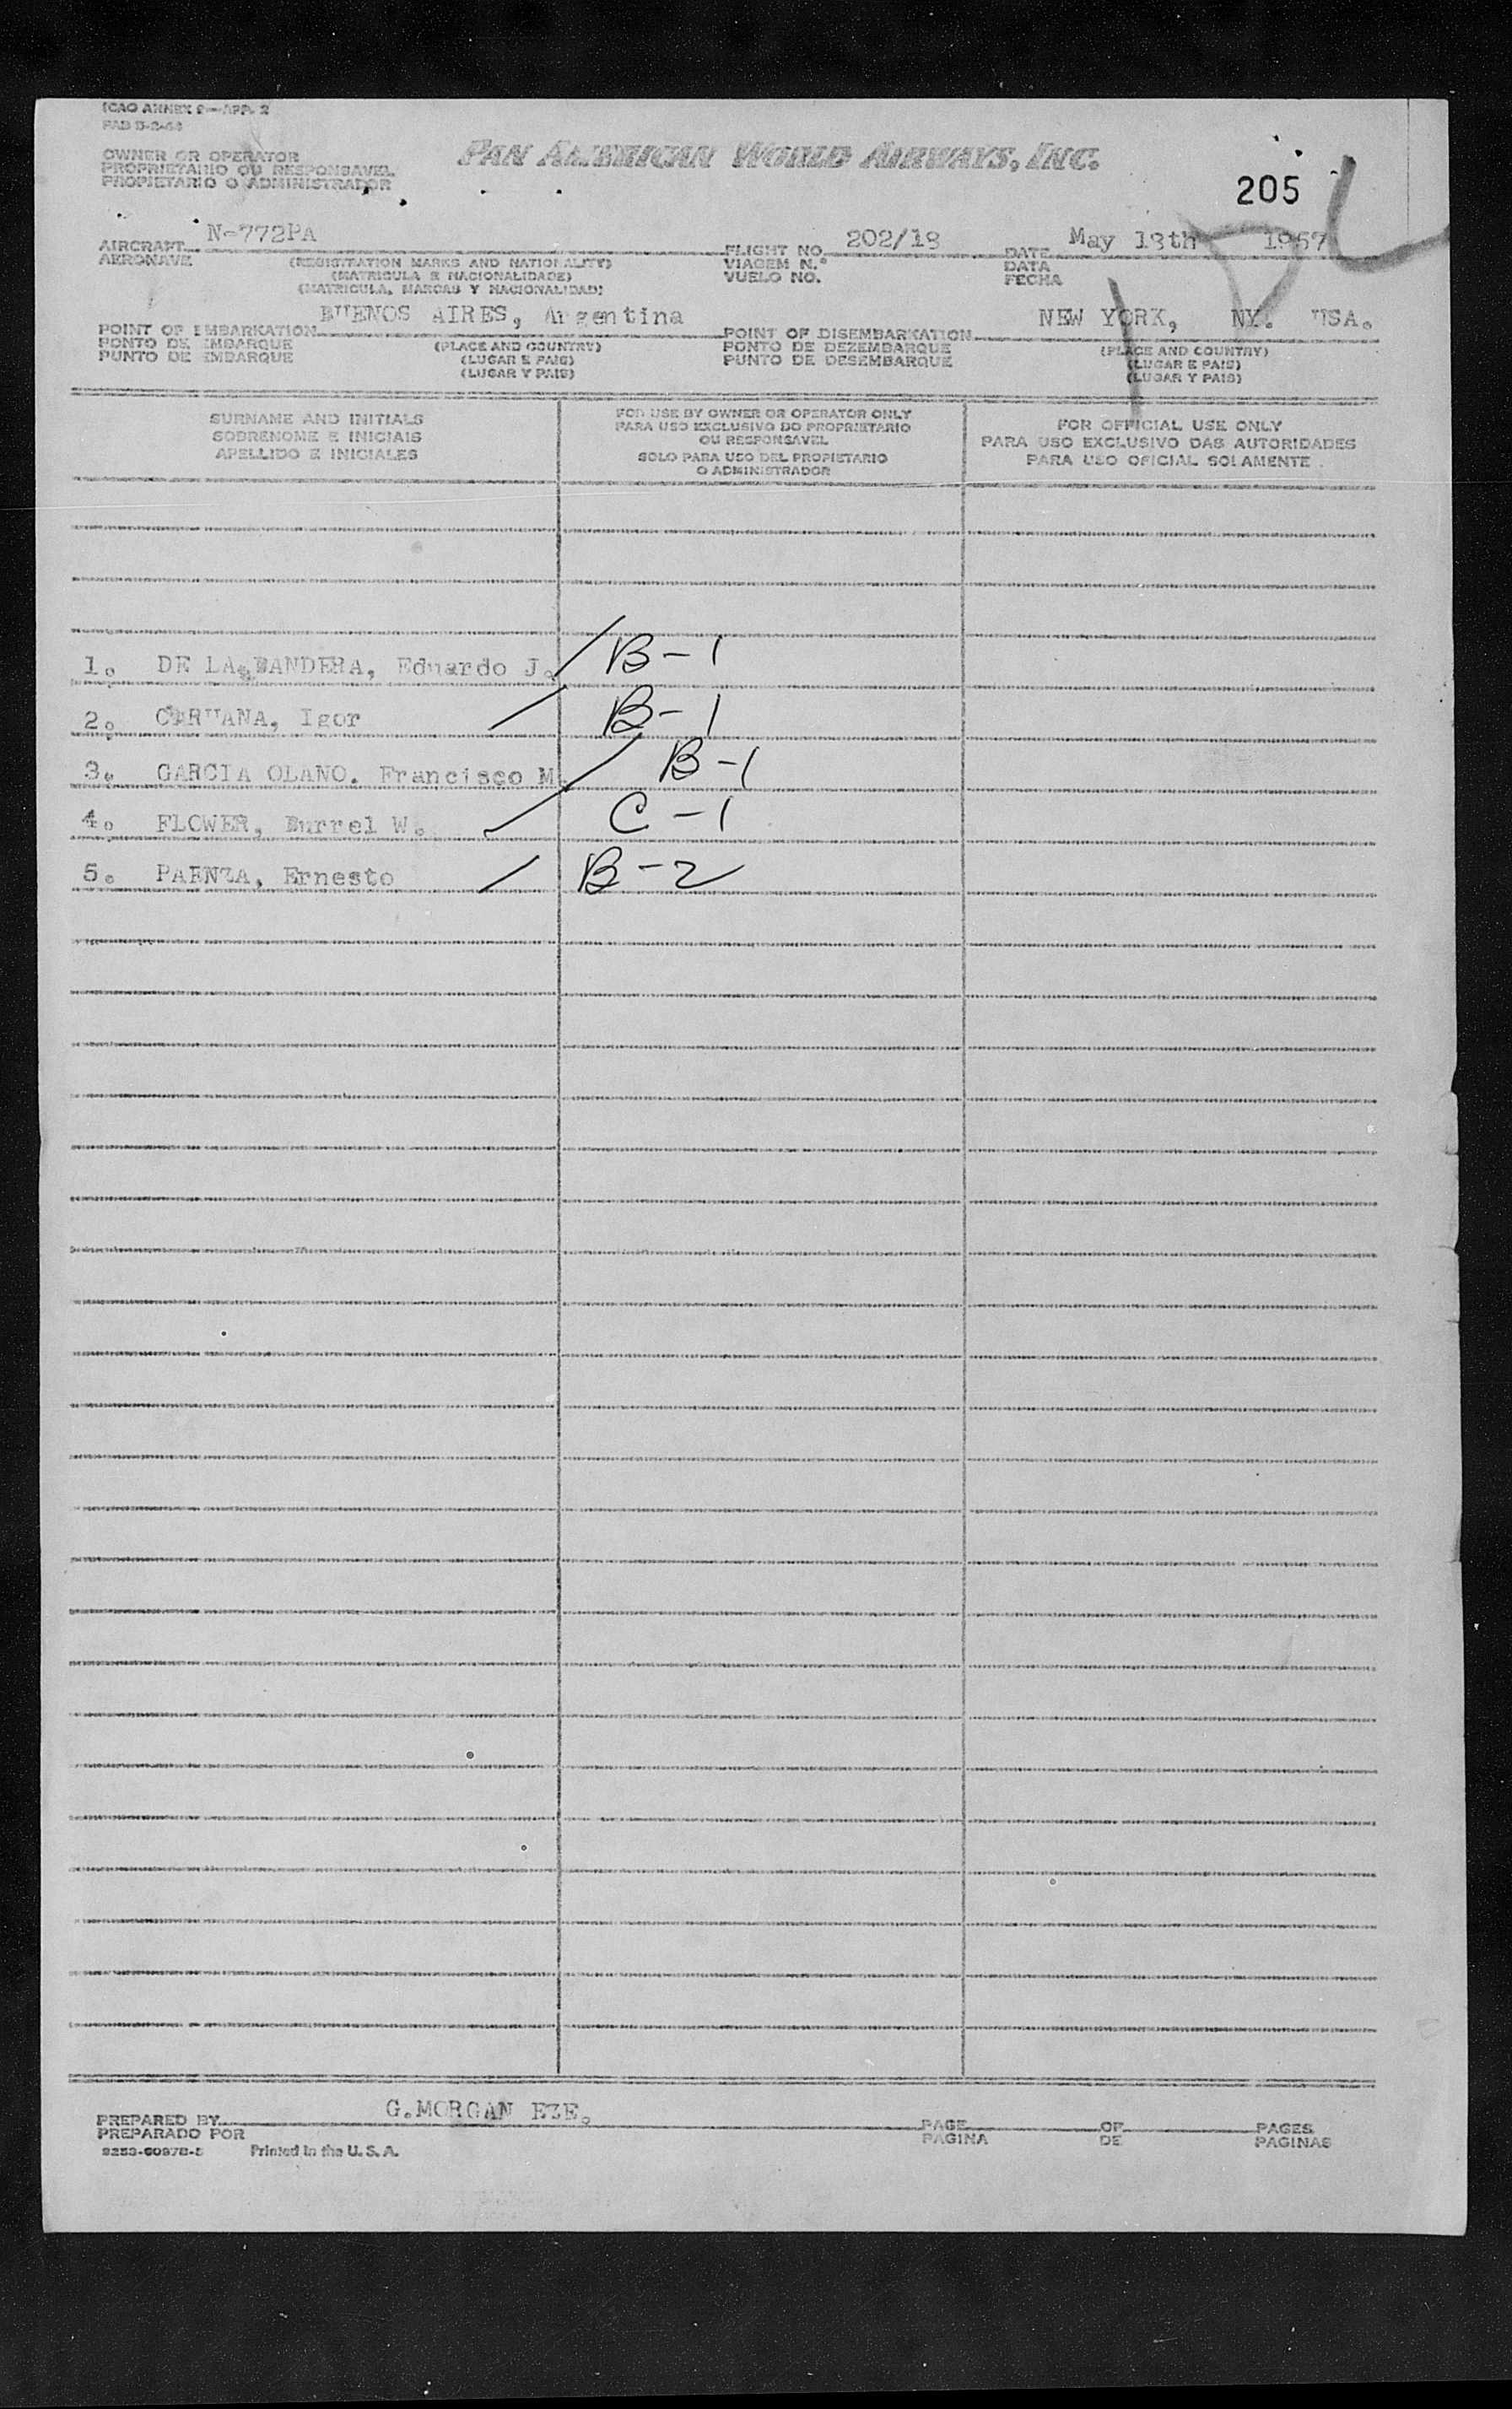 ICAO ANNEX 9—APP. 2
OWNER OR OPERATOR
PROPRIETARIO OU RESPONSAVEL
PROPIETARIO O ADMINISTRADOR
PAN AMERICAN WORLD AIRWAYS, INC.
205
AIRCRAFT N-772PA FLIGHT NO. 202/18 DATE May 18th 1967
AERONAVE (REGISTRATION MARKS AND NATIONALITY) VIAGEM N.° DATA
(MATRICULA E NACIONALIDADE) VUELO NO. FECHA
(MATRICULA, MARCAS Y NACIONALIDAD)
POINT OF EMBARKATION BUENOS AIRES, Argentina POINT OF DISEMBARKATION NEW YORK, NY. USA.
PONTO DE EMBARQUE (PLACE AND COUNTRY) PONTO DE DEZEMBARQUE (PLACE AND COUNTRY)
PUNTO DE EMBARQUE (LUGAR E PAIS) PUNTO DE DESEMBARQUE (LUGAR E PAIS)
(LUGAR Y PAIS) (LUGAR Y PAIS)
SURNAME AND INITIALS
SOBRENOME E INICIAIS
APELLIDO E INICIALES
FOR USE BY OWNER OR OPERATOR ONLY
PARA USO EXCLUSIVO DO PROPRIETARIO
OU RESPONSAVEL
SOLO PARA USO DEL PROPIETARIO
O ADMINISTRADOR
FOR OFFICIAL USE ONLY
PARA USO EXCLUSIVO DAS AUTORIDADES
PARA USO OFICIAL SOLAMENTE
1. DE LA BANDERA, Eduardo J. B-1
2. CARUANA, Igor B-1
3. GARCIA OLANO. Francisco M. B-1
4. FLOWER, Burrel W. C-1
5. PAENZA, Ernesto B-2
PREPARED BY G.MORGAN EZE. PAGE OF PAGES
PREPARADO POR PAGINA DE PAGINAS
Printed in the U. S. A.